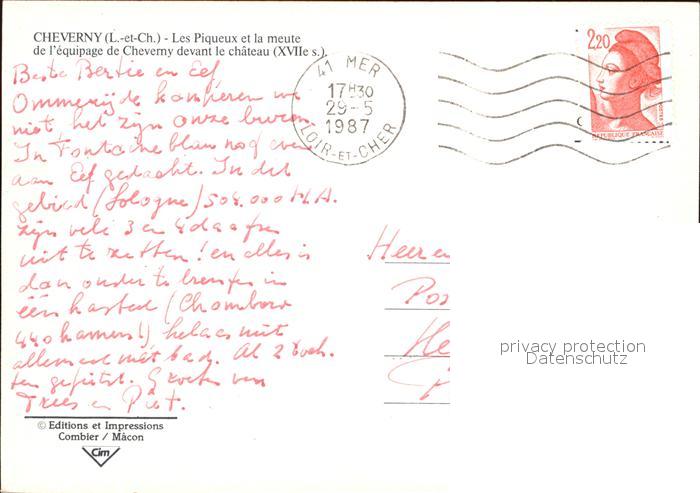 CHEVERNY (L.-et-Ch.) - Les Piqueux et la meute
de l'équipage de Cheverny devant le château (XVIIe s.).
Beste Bertie en Eef
Ommerijde kamperen we
niet het zijn onze buren.
In Fontainebleau nog even
aan Eef gedacht. In dit
gebied (Sologne) 504.000 H.A.
zijn vele 3 en 4daagsen
uit te zetten! en alles is
dan onder te brengen in
één kasteel (Chambord
440 kamers!), helaas niet
allemaal met bad. Al 2
gefietst. Groeten van
Trees en Piet.
© Editions et Impressions
Combier / Mâcon
Cim
41 MER
17H30
29-5
1987
LOIR-ET-CHER
2,20
REPUBLIQUE FRANÇAISE
Heer en
Pos
He
privacy protection
Datenschutz